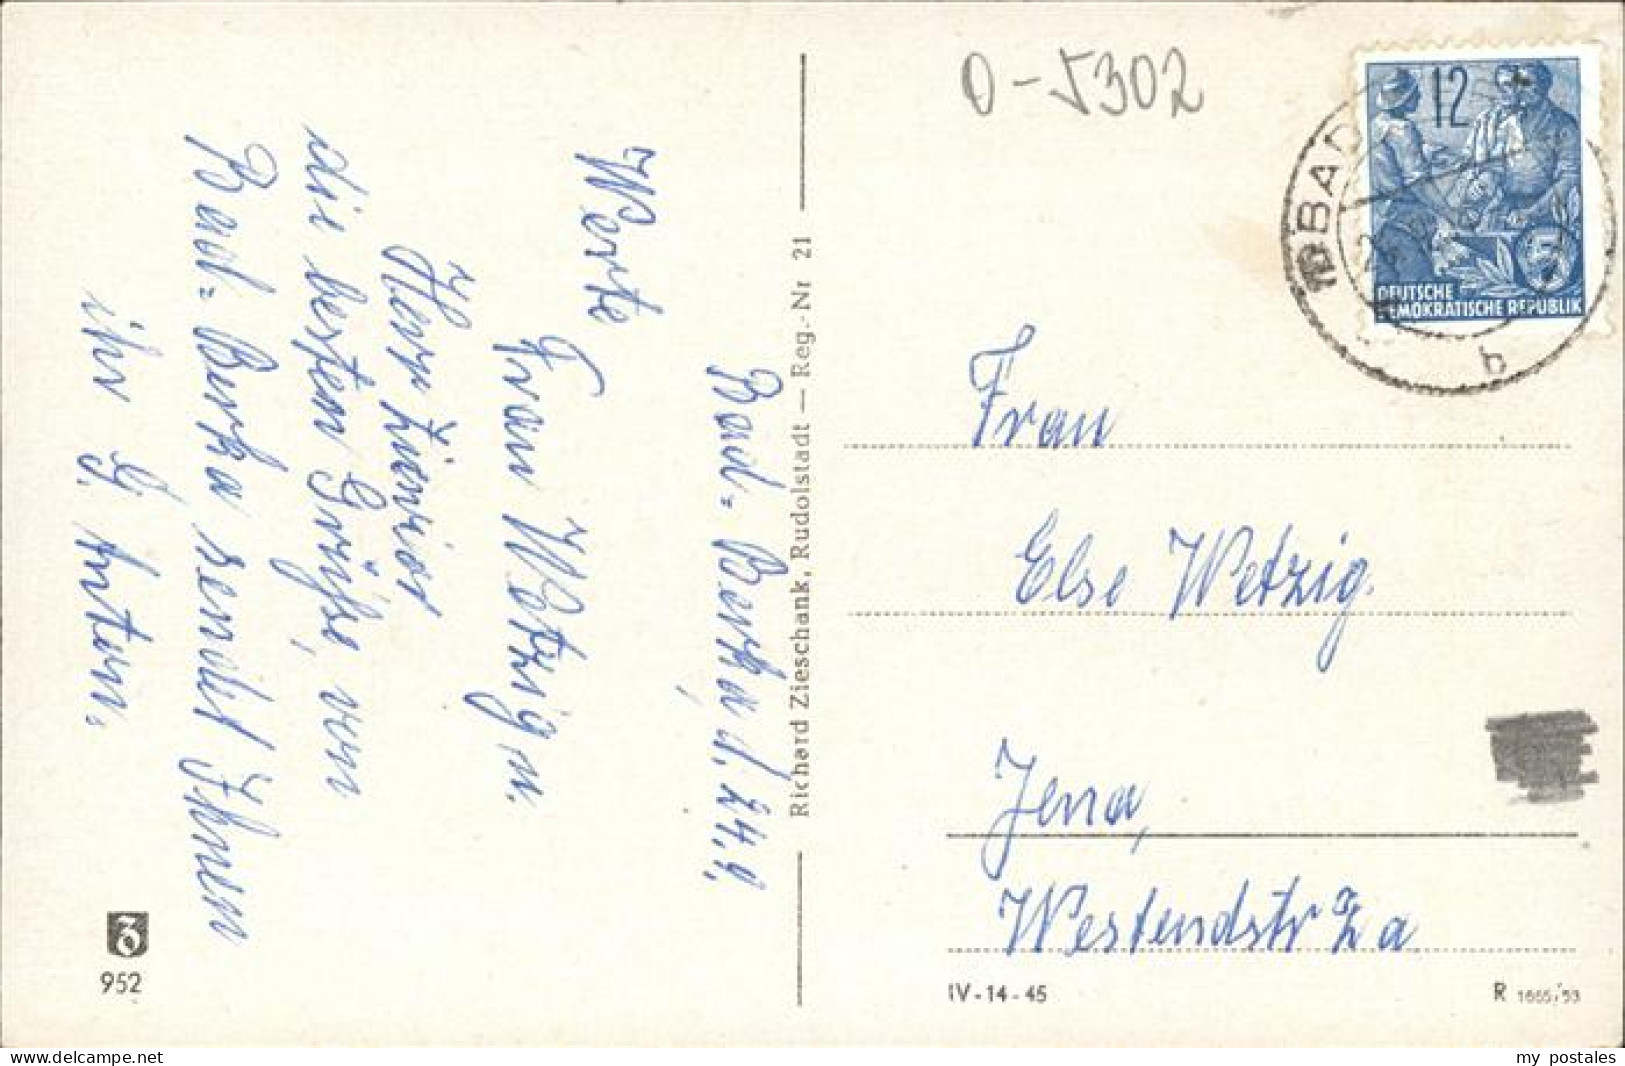 O-5302
12
5
DEUTSCHE
DEMOKRATISCHE REPUBLIK
BAD
b
Bad=Berka, d. 24.9.
Werte
Frau Wetzig u.
Herr
die besten Grüße, von
Bad=Berka sendet Ihnen
ihr G. Anton.
Richard Zieschank, Rudolstadt — Reg.-Nr 21
Frau
Else Wetzig.
Jena,
Westendstr 2a
952
IV-14-45
R 1665/53
www.delcampe.net
my_postales